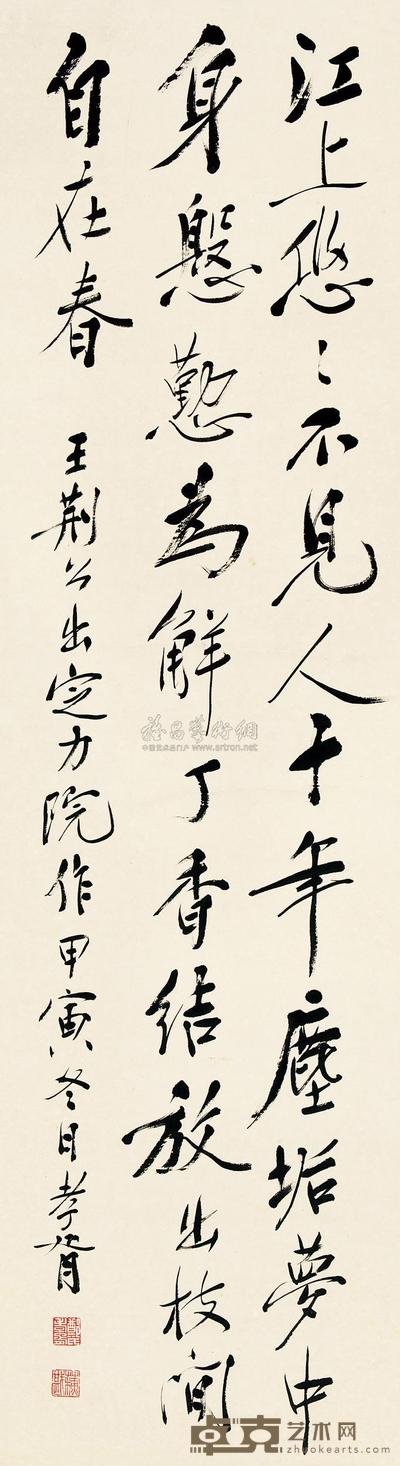 江上悠〻不見人千年塵垢夢中
身慇懃為解丁香結放出枝間
自在春
王荆公出定力院作甲寅冬日孝胥
雅昌藝術網
中国艺术品门户 www.artron.net
卓克艺术网
zhuokearts.com